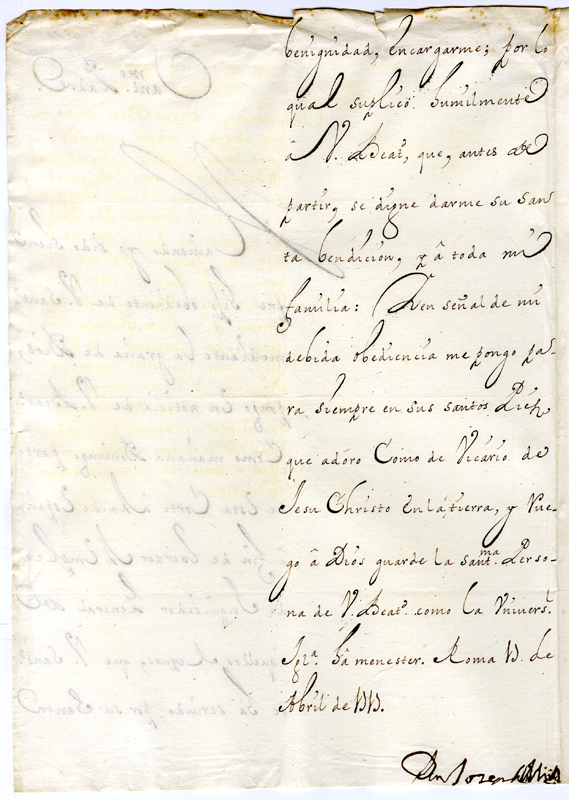 benignidad, encargarme; por lo
qual suplico humilmente
â V. Beat.d, que, antes de
partir, se digne darme su san
ta bendicion, y â toda mi
familia: Y en señal de mi
debida obediencia me pongo pa-
ra siempre en sus santos Pies
que adóro Como de Vicario de
Jesu Christo en la tierra, y rue-
go â Dios guarde la Sant.ma Perso-
na de V. Beat.d como la Vnivers.l
Igl.a hâ menester. Roma de
Abril de